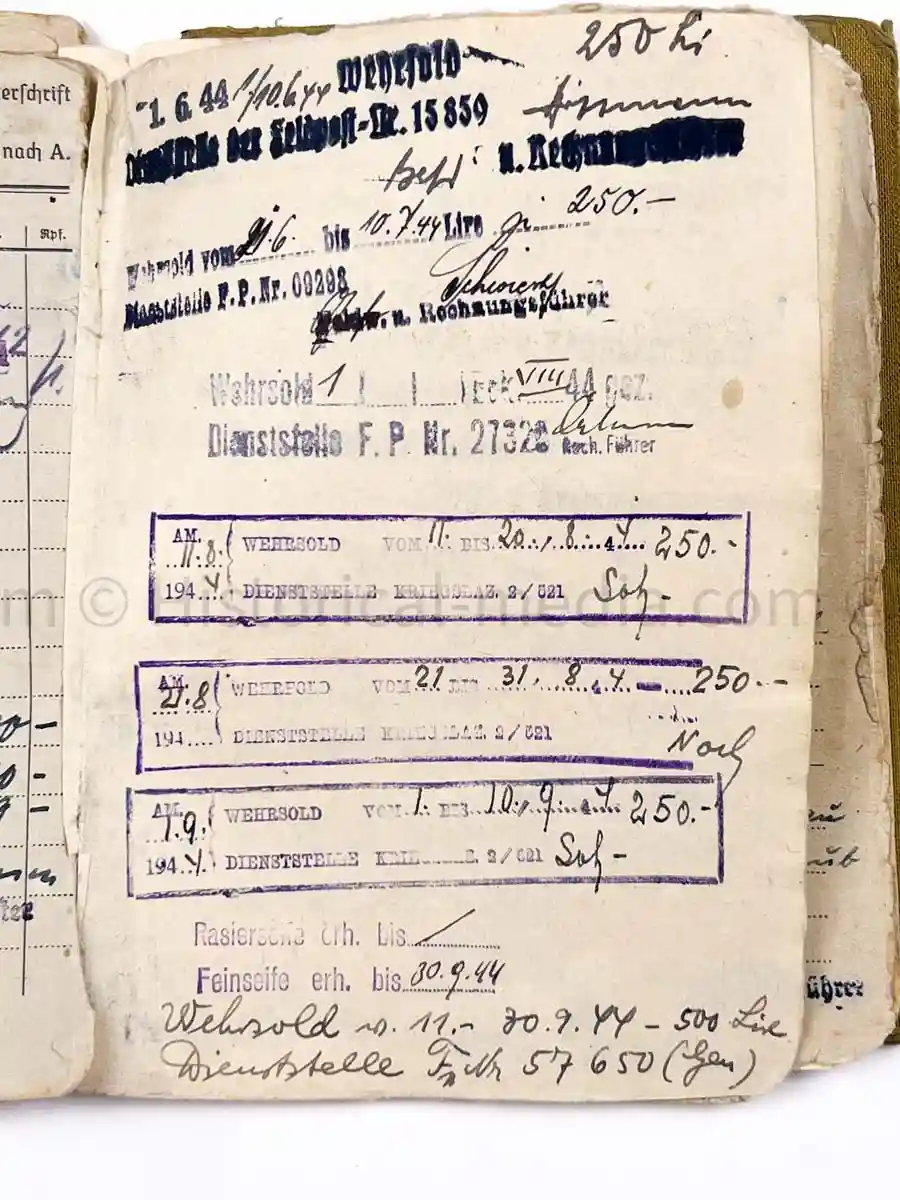 erschrift
nach A.
Rpf.
250 Li
1. 6. 44 / 10.6.44 Wehrsold
Dienststelle der Feldpost-Nr. 15859
u. Rechnungsführer
Wehrsold vom 21.6. bis 10.7.44 Lire 250.-
Dienststelle F. P. Nr. 00298
u. Rechnungsführer
Wehrsold 1 / / Dek. VIII 44 gez.
Dienststelle F. P. Nr. 27328
Rech. Führer
AM. 11.8. WEHRSOLD VOM 11. BIS 20. 8. 44 250.-
1944 DIENSTSTELLE KRIEGSLAZ. 2/621
AM. 21.8 WEHRSOLD VOM 21 BIS 31. 8. 44 250.-
194 DIENSTSTELLE KRIEGSLAZ. 2/621
AM. 1.9. WEHRSOLD VOM 1. BIS 10. 9. 44 250.-
1944 DIENSTSTELLE KRIEGSLAZ. 2/621
Rasierseife erh. bis /
Feinseife erh. bis 30.9.44
Wehrsold v. 11.- 30.9.44 - 500 Lire
Dienststelle F.Nr 57 650 (Gen)
ührer
© Historical-media.com